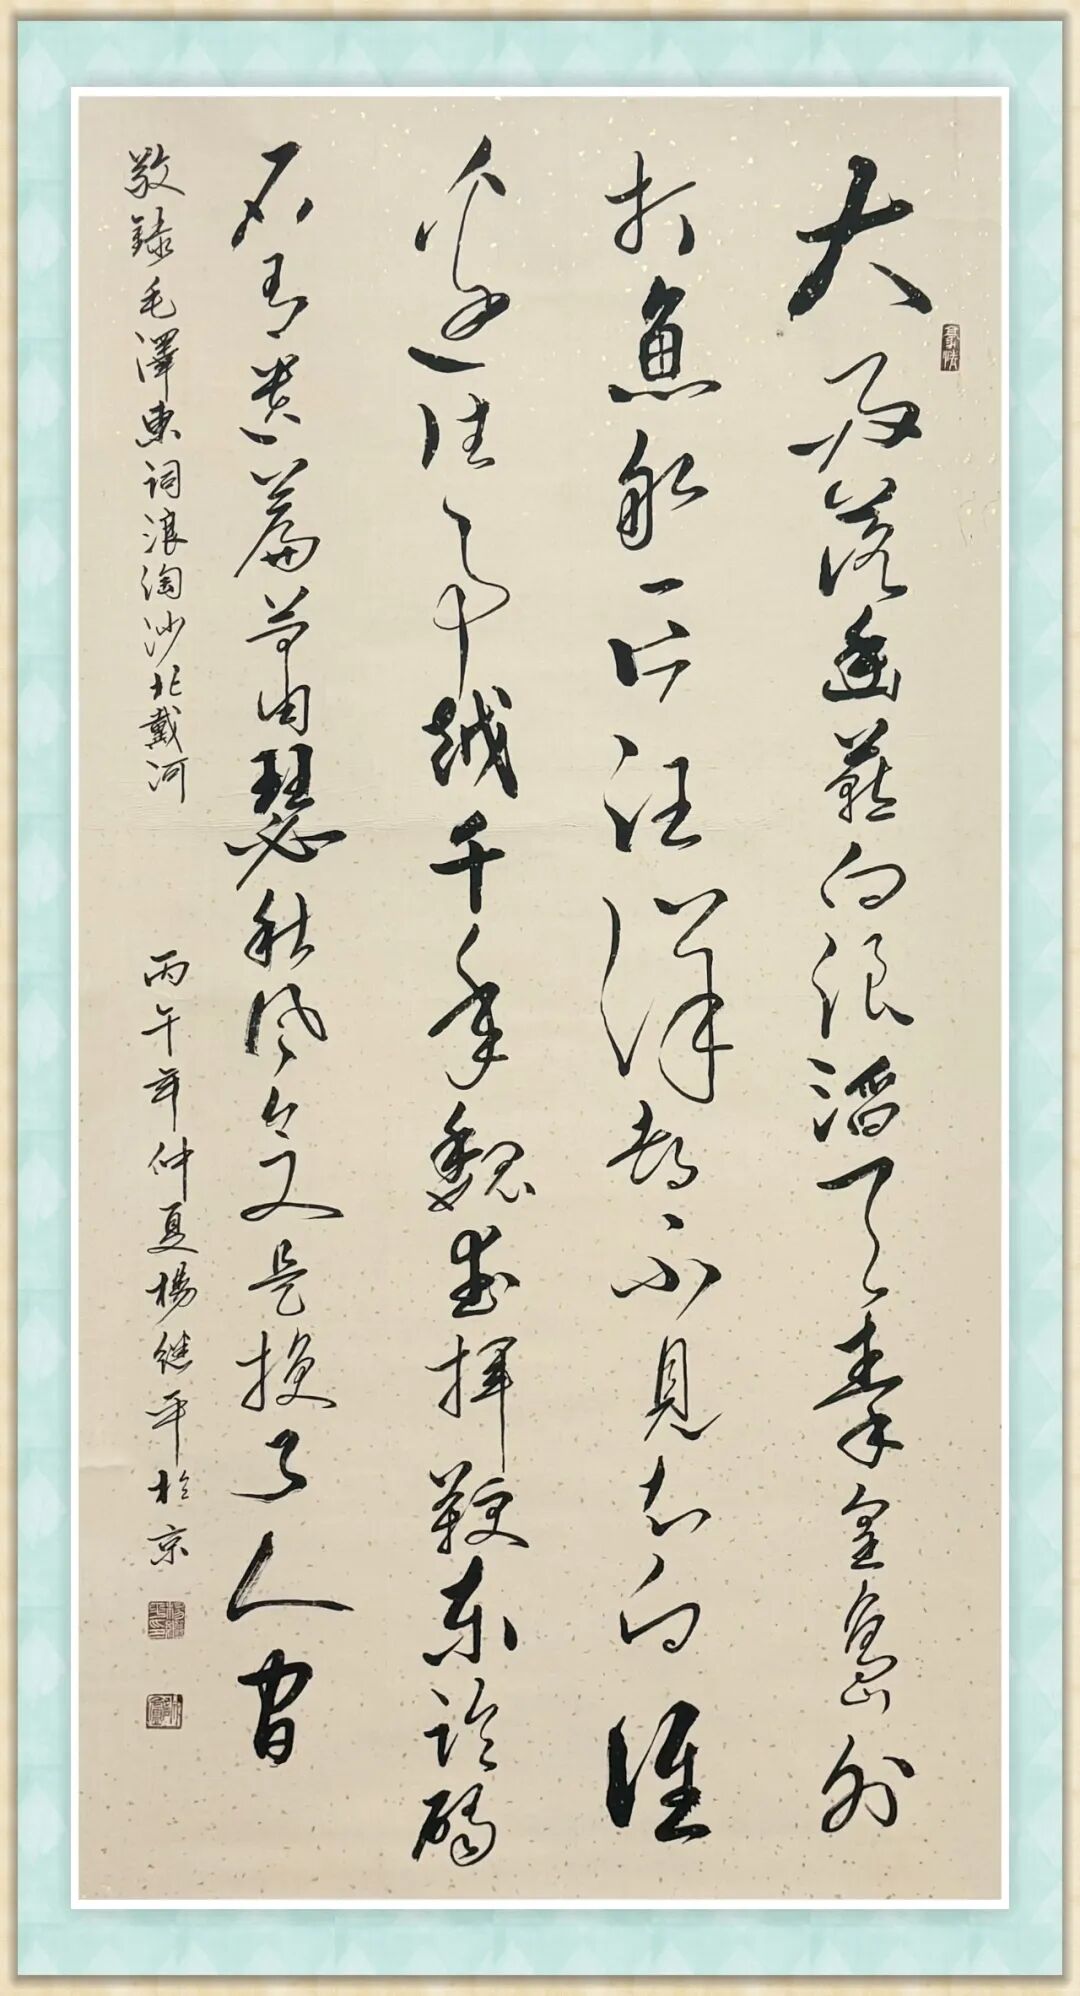 大雨落幽燕白浪滔天秦皇島外
打魚船一片汪洋都不見知向誰
邊往事越千年魏武揮鞭東臨碣
石有遺篇蕭瑟秋风今又是換了人間
敬錄毛澤東詞浪淘沙北戴河
丙午年仲夏楊继平於京